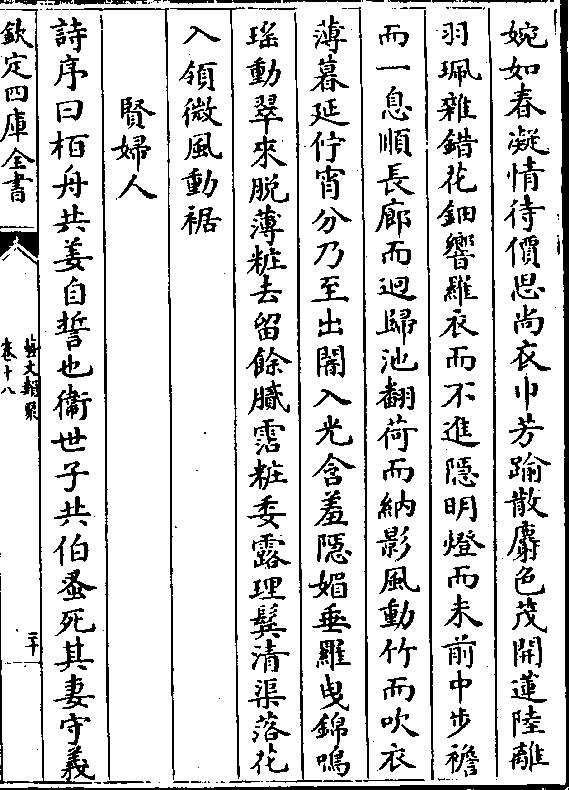 婉如春凝情待價思尚衣巾芳踰散麝色茂開蓮陸離
羽珮雜錯花鈿響羅衣而不進隱明燈而未前中步襜
而一息順長廊而迴歸池翻荷而納影風動竹而吹衣
薄暮延佇宵分乃至出闇入光含羞隱媚垂羅曳錦鳴
瑤動翠來脱薄粧去留餘膩霑粧委露理鬢清渠落花
入領微風動裾
賢婦人
詩序曰栢舟共姜自誓也衞世子共伯蚤死其妻守義
欽定四庫全書
藝文類聚
卷十八
二十